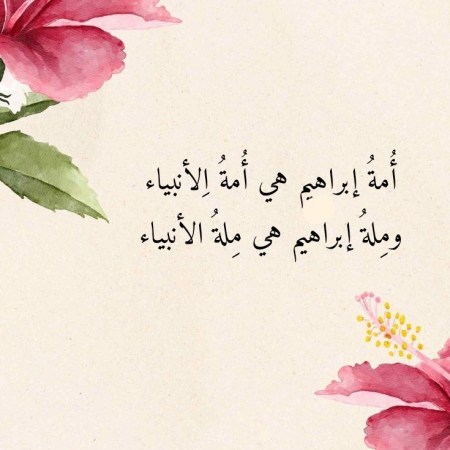 أُمةُ إبراهيمِ هي أُمةُ اِلأنبياء
ومِلةُ إبراهيم هي مِلةُ الأنبياء